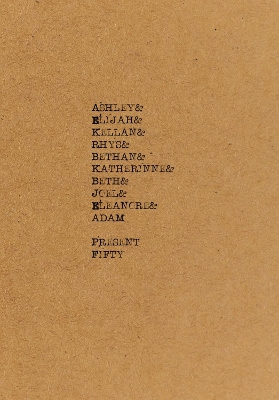 ASHLEY&
ELIJAH&
KELLAN&
RHYS&
BETHAN&
KATHERINNE&
BETH&
JOEL&
ELEANORE&
ADAM
PRESENT
FIFTY